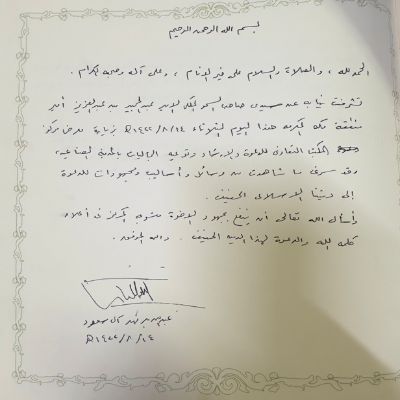 بسم الله الرحمن الرحيم
الحمد لله ، والصلاة والسلام على خير الأنام ، وعلى آله وصحبه الكرام .
تشرفت نيابة عن سيدي صاحب السمو الملكي الأمير عبدالمجيد بن عبدالعزيز أمير
منطقة مكة المكرمة هذا اليوم الثلاثاء ١٤٢٢/٨/١٤هـ بزيارة معرض مركز
المكتب التعاوني للدعوة والإرشاد وتوعية الجاليات بالمدينة الصناعية
وقد سرني ما شاهدت من وسائل وأساليب ومجهودات للدعوة
إلى ديننا الإسلامي الحنيف .
وأسأل الله تعالى أن ينفع بجهود الإخوة منسوبي المركز في إعلاء
كلمة الله والدعوة لهذا الدين الحنيف . والله الموفق .
عبدالله بن فهد آل سعود
١٤٢٢/٨/١٤هـ